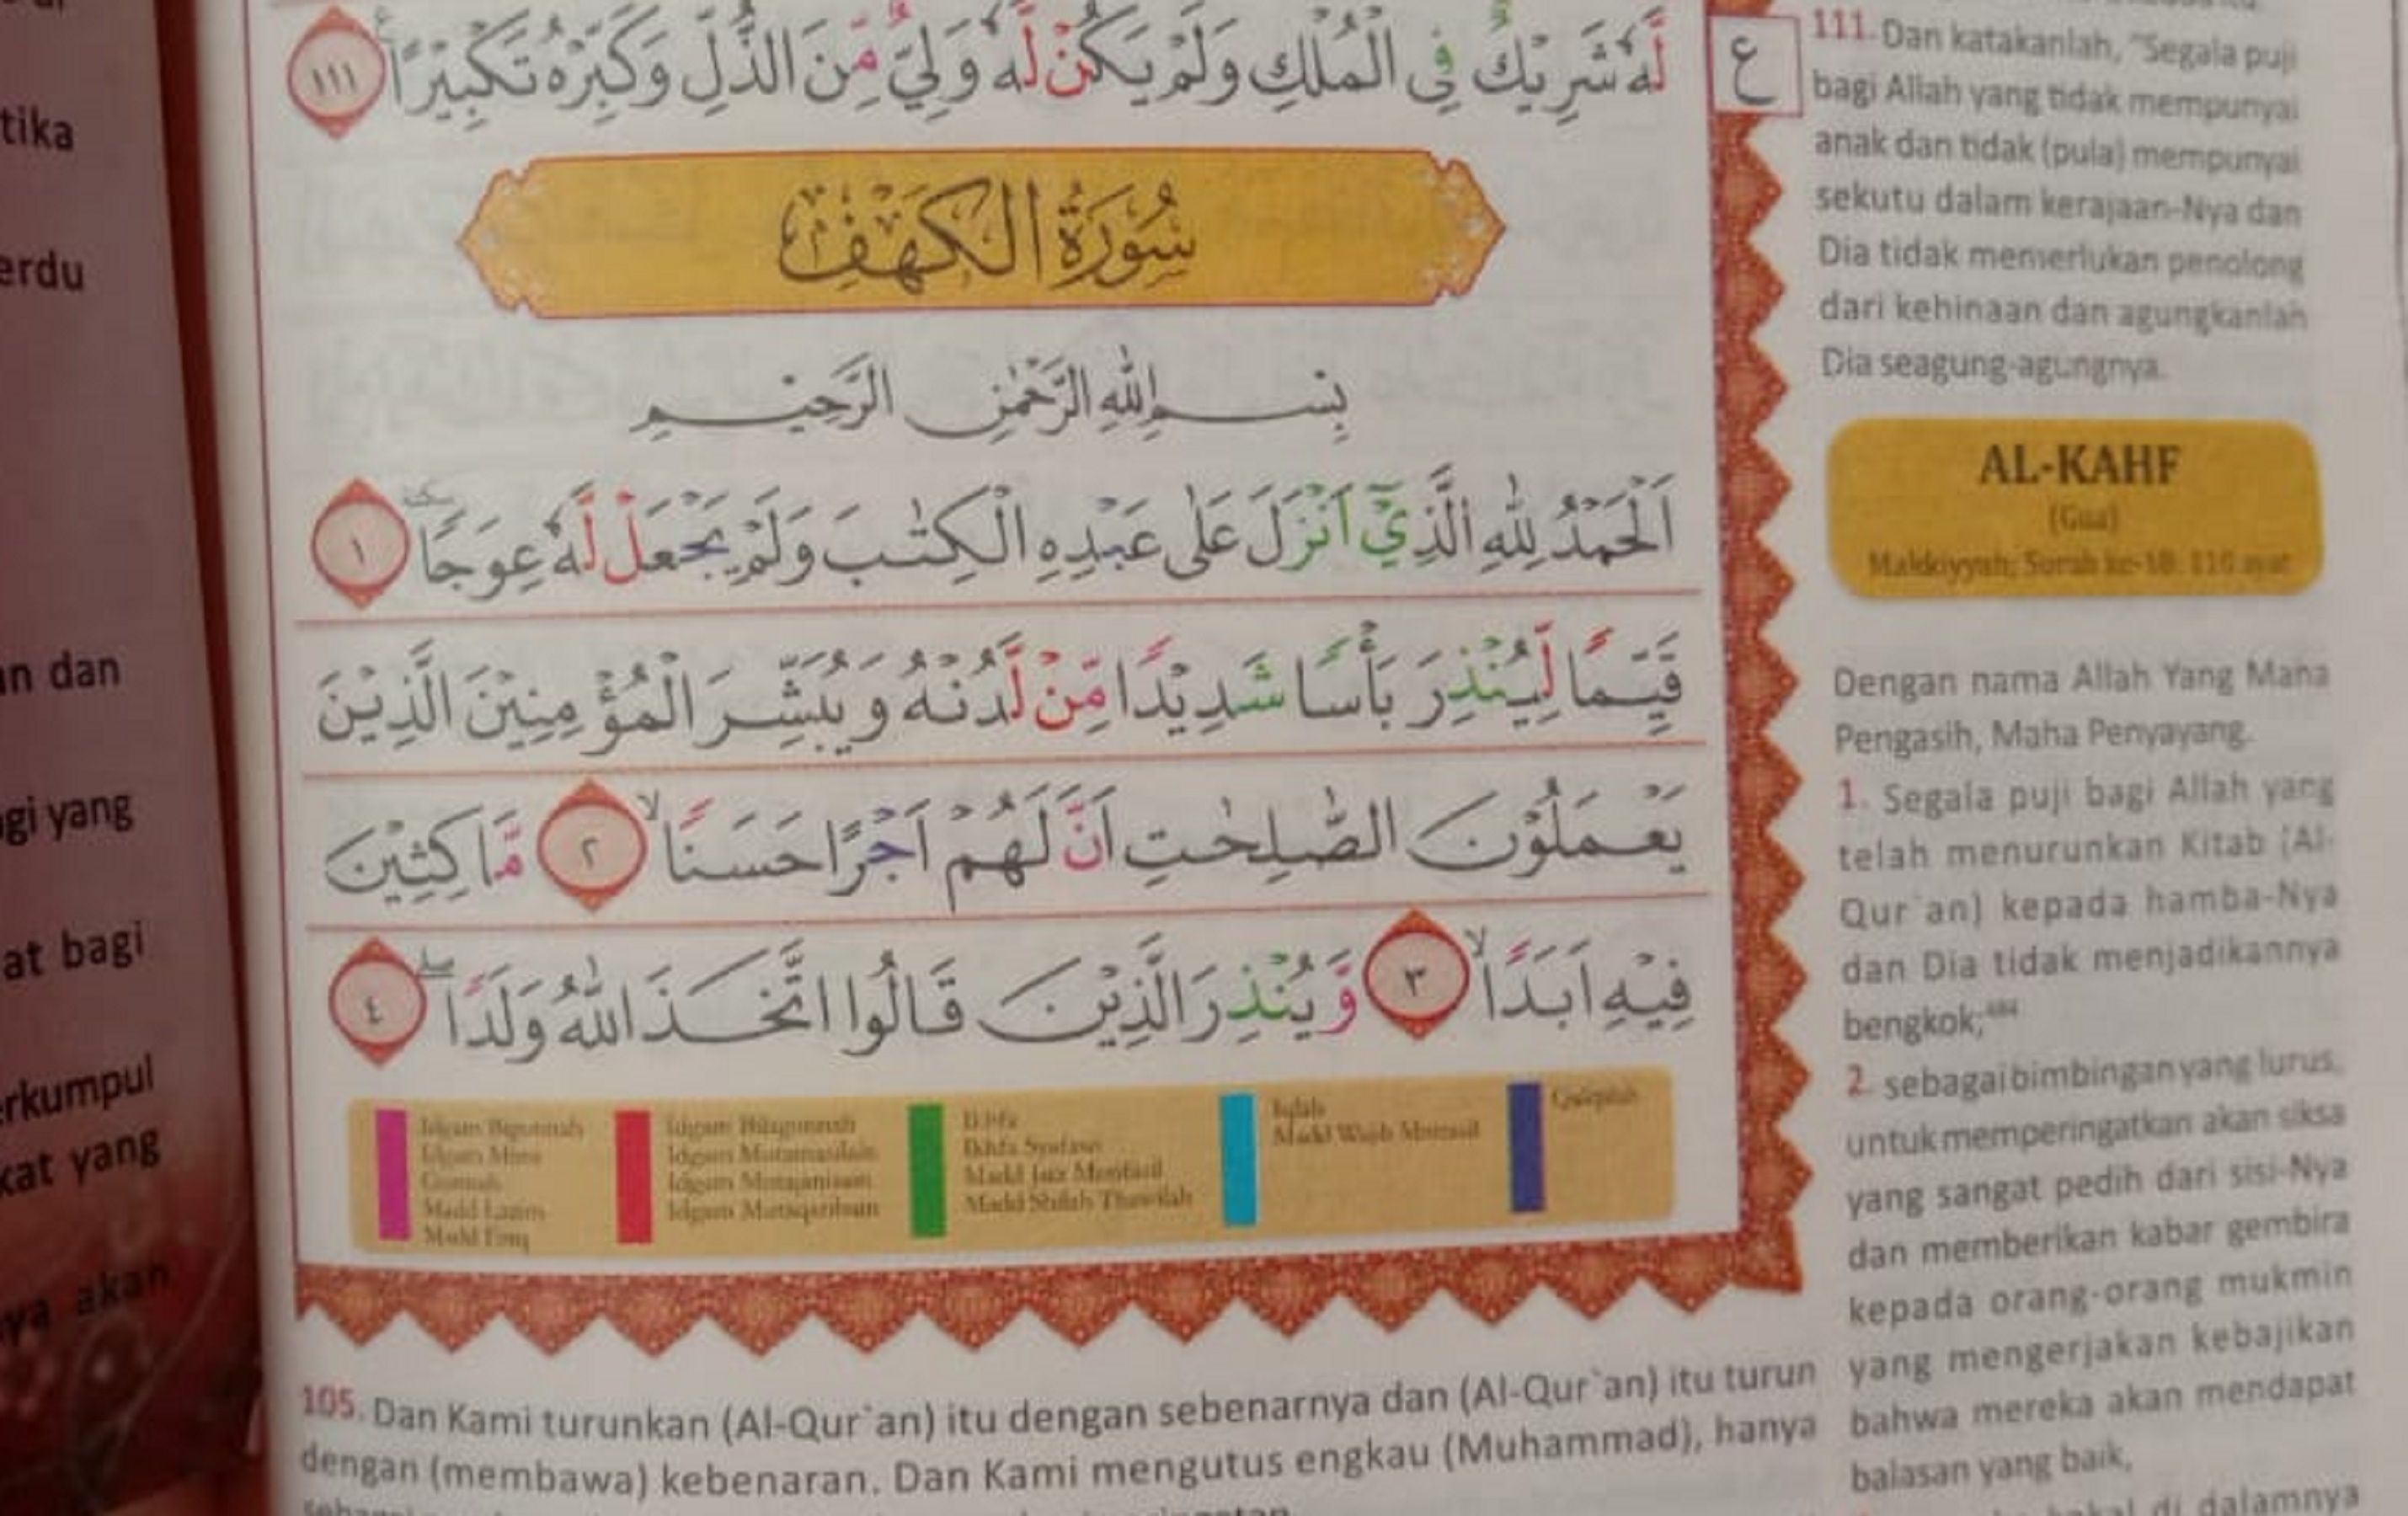 tika
erdu
un dan
gi yang
at bagi
erkumpul
kat yang
ya akan
لَّهٗ شَرِيْكٌ فِى الْمُلْكِ وَلَمْ يَكُنْ لَّهٗ وَلِيٌّ مِّنَ الذُّلِّ وَكَبِّرْهُ تَكْبِيْرًا ࣖ ١١١
ع
سُوْرَةُ الْكَهْفِ
بِسْمِ اللّٰهِ الرَّحْمٰنِ الرَّحِيْمِ
اَلْحَمْدُ لِلّٰهِ الَّذِيْٓ اَنْزَلَ عَلٰى عَبْدِهِ الْكِتٰبَ وَلَمْ يَجْعَلْ لَّهٗ عِوَجًا ۜ ١
قَيِّمًا لِّيُنْذِرَ بَأْسًا شَدِيْدًا مِّنْ لَّدُنْهُ وَيُبَشِّرَ الْمُؤْمِنِيْنَ الَّذِيْنَ
يَعْمَلُوْنَ الصّٰلِحٰتِ اَنَّ لَهُمْ اَجْرًا حَسَنًا ۙ ٢ مَّاكِثِيْنَ
فِيْهِ اَبَدًا ۙ ٣ وَّيُنْذِرَ الَّذِيْنَ قَالُوا اتَّخَذَ اللّٰهُ وَلَدًا ۖ ٤
Idgam Bigunnah
Idgam Mimi
Gunnah
Madd Lazim
Madd Farq
Idgam Bilagunnah
Idgam Mutamasilain
Idgam Mutajanisain
Idgam Mutaqaribain
Ikhfa
Ikhfa Syafawi
Madd Jaiz Munfasil
Madd Shilah Thawilah
Iqlab
Madd Wajib Muttasil
Qalqalah
105. Dan Kami turunkan (Al-Qur`an) itu dengan sebenarnya dan (Al-Qur`an) itu turun
dengan (membawa) kebenaran. Dan Kami mengutus engkau (Muhammad), hanya
111. Dan katakanlah, "Segala puji
bagi Allah yang tidak mempunyai
anak dan tidak (pula) mempunyai
sekutu dalam kerajaan-Nya dan
Dia tidak memerlukan penolong
dari kehinaan dan agungkanlah
Dia seagung-agungnya.
AL-KAHF
(Gua)
Makkiyyah; Surah ke-18: 110 ayat
Dengan nama Allah Yang Maha
Pengasih, Maha Penyayang.
1. Segala puji bagi Allah yang
telah menurunkan Kitab (Al-
Qur`an) kepada hamba-Nya
dan Dia tidak menjadikannya
bengkok;
2. sebagai bimbingan yang lurus,
untuk memperingatkan akan siksa
yang sangat pedih dari sisi-Nya
dan memberikan kabar gembira
kepada orang-orang mukmin
yang mengerjakan kebajikan
bahwa mereka akan mendapat
balasan yang baik,
di dalamnya